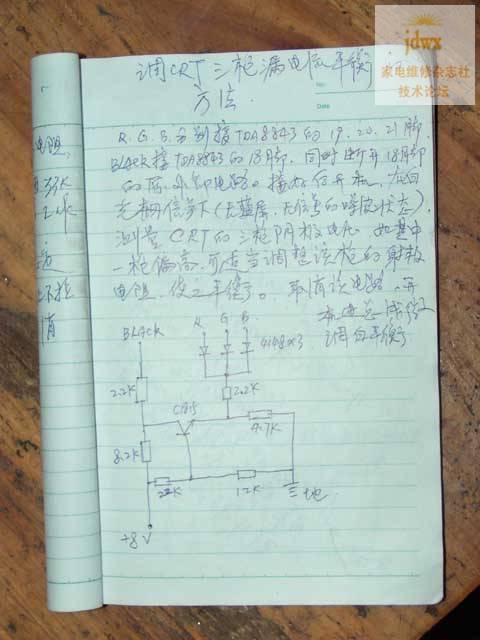 jdwx
家电维修杂志社
技术论坛
调CRT三枪漏电流平衡的
方法.
No:
Date
R、G、B、分别接TDA8843的19、20、21脚.
BLACK接TDA8843的18脚. 同时断开18脚
的原外部电路。接好后开机, 在白
光栅信号下(无蓝屏、无信号的噪波状态),
测量CRT的三枪阴极电压 如其中
一枪偏高,可适当调整该枪的射极
电阻,使之平衡。 取消该电路,再
调白平衡
电阻,
BLACK
R G B
4148×3
2.2K
2.2K
C815
4.7K
8.2K
22K
12K
地
+8V